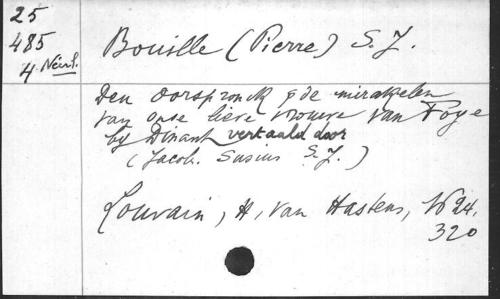 25
485
4 Néerl.
Bouille (Pierre) S. J.
Den oorspronck & de mirakelen
van onse lieve vrouwe van Foye
by Dinant vertaald door
(Jacob. Susius S. J.)
Louvain, H. van Hastens, 1624.
320